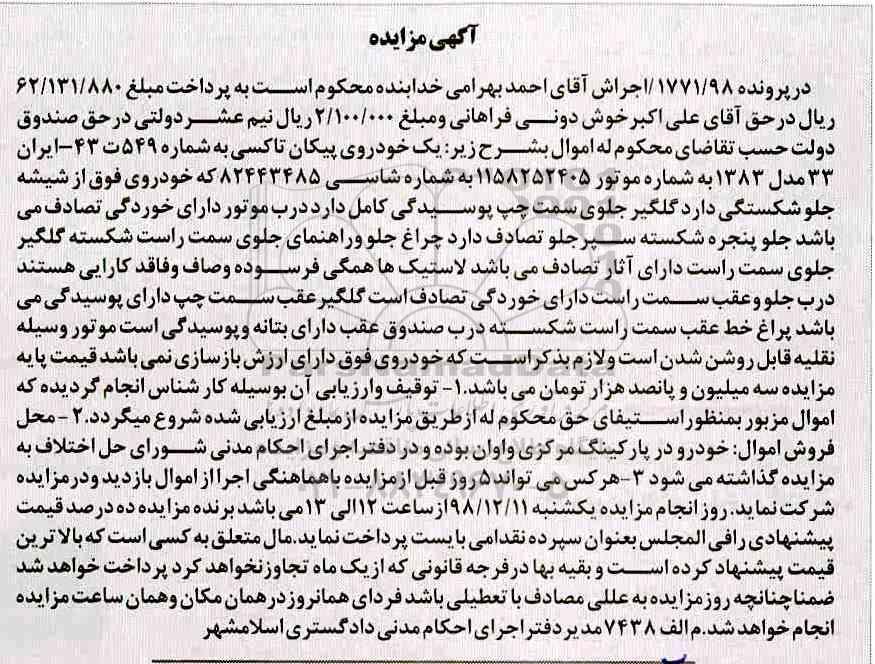 آگهی مزایده
در پرونده ۱۷۷۱/۹۸/اجراش آقای احمد بهرامی خدابنده محکوم است به پرداخت مبلغ ۶۲/۱۳۱/۸۸۰
ریال در حق آقای علی اکبر خوش دونی فراهانی ومبلغ ۲/۱۰۰/۰۰۰ ریال نیم عشر دولتی در حق صندوق
دولت حسب تقاضای محکوم له اموال بشرح زیر: یک خودروی پیکان تاکسی به شماره ۵۴۹ت ۴۳-ایران
۳۳ مدل ۱۳۸۳ به شماره موتور ۱۱۵۸۲۵۲۴۰۵ به شماره شاسی ۸۲۴۴۳۴۸۵ که خودروی فوق از شیشه
جلو شکستگی دارد گلگیر جلوی سمت چپ پوسیدگی کامل دارد درب موتور دارای خوردگی تصادف می
باشد جلو پنجره شکسته سپر جلو تصادف دارد چراغ جلو وراهنمای جلوی سمت راست شکسته گلگیر
جلوی سمت راست دارای آثار تصادف می باشد لاستیک ها همگی فرسوده وصاف وفاقد کارایی هستند
درب جلو وعقب سمت راست دارای خوردگی تصادف است گلگیر عقب سمت چپ دارای پوسیدگی می
باشد پراغ خط عقب سمت راست شکسته درب صندوق عقب دارای بتانه وپوسیدگی است موتور وسیله
نقلیه قابل روشن شدن است ولازم بذکر است که خودروی فوق دارای ارزش بازسازی نمی باشد قیمت پایه
مزایده سه میلیون و پانصد هزار تومان می باشد.۱- توقیف وارزیابی آن بوسیله کارشناس انجام گردیده که
اموال مزبور بمنظور استیفای حق محکوم له از طریق مزایده از مبلغ ارزیابی شده شروع میگردد.۲-محل
فروش اموال: خودرو در پارکینگ مرکزی واوان بوده و در دفتر اجرای احکام مدنی شورای حل اختلاف به
مزایده گذاشته می شود ۳-هر کس می تواند ۵ روز قبل از مزایده باهماهنگی اجرا از اموال بازدید ودرمزایده
شرکت نماید.روز انجام مزایده یکشنبه ۹۸/۱۲/۱۱ از ساعت ۱۲الی ۱۳می باشد برنده مزایده ده درصد قیمت
پیشنهادی رافی المجلس بعنوان سپرده نقدامی بایست پرداخت نماید.مال متعلق به کسی است که بالاترین
قیمت پیشنهاد کرده است و بقیه بها درفرجه قانونی که از یک ماه تجاوز نخواهد کرد پرداخت خواهد شد
ضمناچنانچه روز مزایده به عللی مصادف با تعطیلی باشد فردای همانروز درهمان مکان وهمان ساعت مزایده
انجام خواهد شد.م الف ۷۴۳۸ مدیر دفتر اجرای احکام مدنی دادگستری اسلامشهر